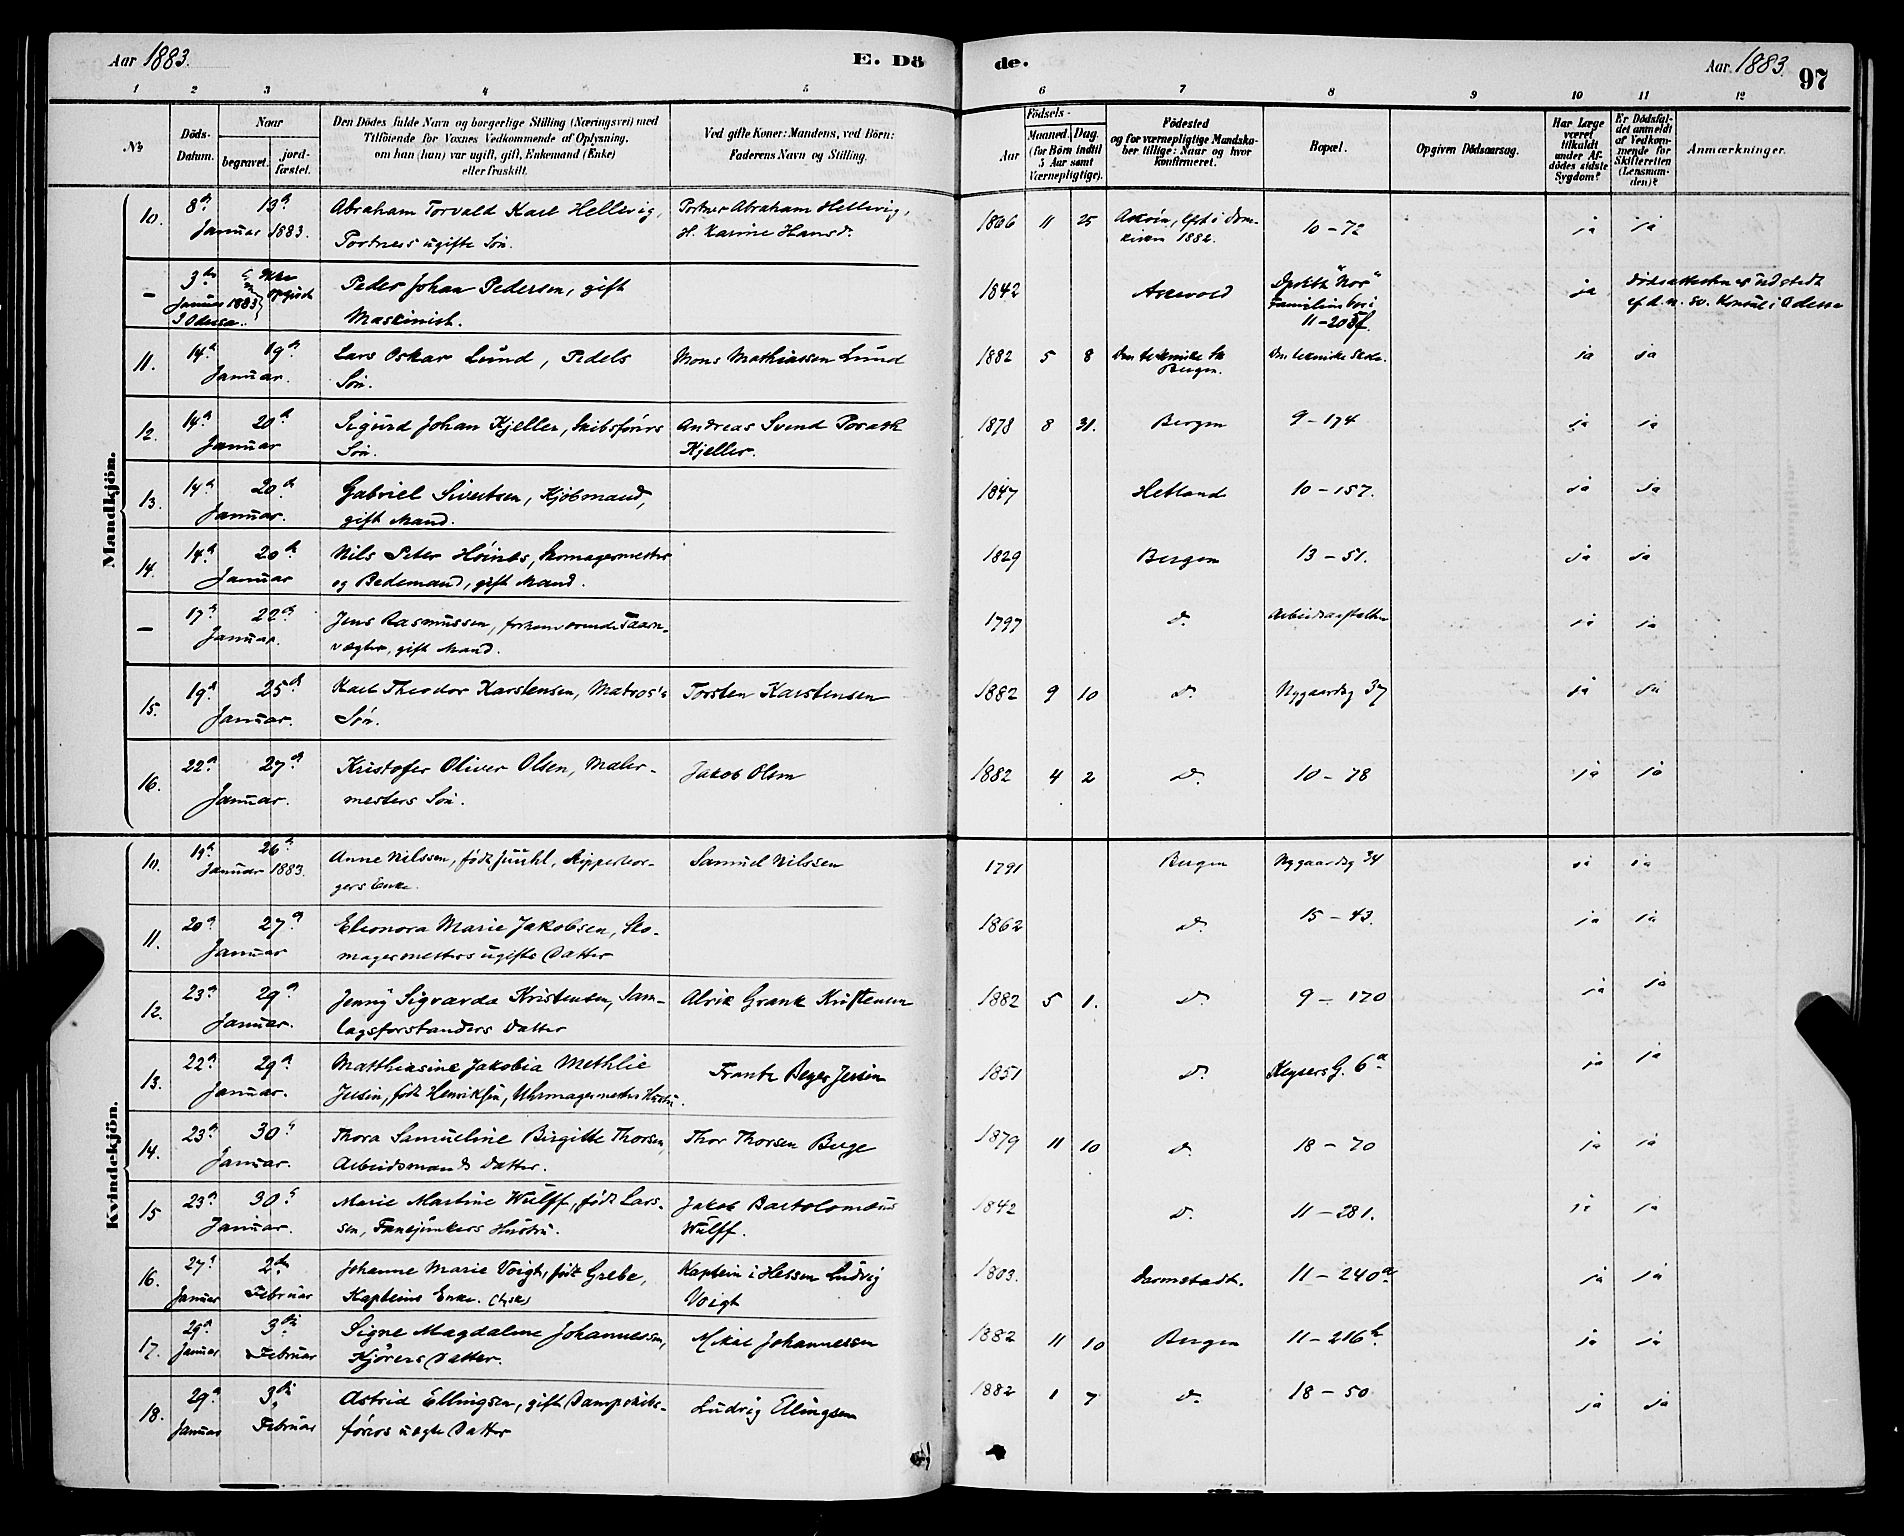 Aar 1883.
E. Dö
de.
Aar 1883
97
1 2 3 4 5 6 7 8 9 10 11 12
No
Döds-Datum.
Naar
begravet.
jord-fæstet.
Den Dödes fulde Navn og borgerlige Stilling (Næringsvei) med
Tilföiende for Voxnes Vedkommende af Oplysning,
om han (hun) var ugift, gift, Enkemand (Enke)
eller fraskilt.
Ved gifte Koner: Mandens, ved Börn:
Faderens Navn og Stilling.
Födsels-
Aar
Maaned. Dag.
(for Börn indtil
5 Aar samt
Værnepligtige).
Födested
og for værnepligtige Mandska-
ber tillige: Naar og hvor
konfirmeret.
Bopæl.
Opgiven Dödsaarsag.
Har Læge
været
tilkaldt
under Af-
dödes sidste
Sygdom?
Er Dödsfal-
det anmeldt
af Vedkom-
mende for
Skifteretten
(Lensman-
den)?
Anmærkninger.
Mandkjön.
10. 8de 13de Abraham Torvald Karl Hellevig, Portner Abraham Hellevig, 1866 11 25 Askøen, i Dom- 10-72 ja ja
Januar 1883. Portners ugifte Søn. H. Karine Hansd. kirken 1882.
- 3die Peder Johan Pedersen, gift 1842 Askevold Dpskib "Nor" ja Dødsattesten er udstedt
Januar 1883 Maskinist. Familien bor i af d. n. sv. Konsul i Odessa
I Odessa. 11-205f.
11. 14de 19de Lars Oskar Lund, Pedels Mons Mathiassen Lund 1882 5 8 Den tekniske Sk Den tekniske Skole. ja ja
Januar. Søn. Bergen.
12. 14de 20de Sigurd Johan Kjeller, Skibsførers Andreas Svend Kjeller. 1878 8 31. Bergen 9-174 ja ja
Januar Søn.
13. 14de 20de Gabriel Sivertsen, Kjøbmand, 1847 Hetland 10-157. ja ja
Januar. gift Mand.
14. 14de 20de Nils Peter Høines, Skomagermester 1829 Bergen 13-51. ja ja
Januar og Bedemand, gift Mand.
- 17de 22de Jens Rasmussen, forhenværende Taarn- 1797 D. Arbeidsanstalten ja ja
Januar. vægter, gift Mand.
15. 19de 25de Karl Theodor Karstensen, Matros's Torsten Karstensen 1882 9 10 D. Nygaardsg 37 ja ja
Januar. Søn.
16. 22de 27de Kristofer Oliver Olsen, Maler- Jakob Olsen 1882 4 2 D. 10-78 ja ja
Januar. mesters Søn.
Kvindekjön.
10. 19de 26de Anne Nilssen, født Juuhl, Skipperbor- Samuel Nilssen 1791 Bergen Nygaardsg 34 ja ja
Januar 1883. gers Enke.
11. 20de 27de Eleonora Marie Jakobsen, Sko- 1862 D. 15-43. ja ja
Januar magermesters ugifte Datter
12. 23de 29de Jenny Sigvarda Kristensen, Sam- Alrik Grank Kristensen 1882 5 1. D. 9-170 ja ja
Januar. lagsforstanders Datter
13. 22de 29de Matthiasine Jakobia Methlie Frantz Beyer Jersin 1851 D. Keysers G. 6a ja ja
Januar. Jersin, født Henriksen, Uhrmagermesters Hustru.
14. 23de 30te Thora Samueline Birgitte Thorsen, Thor Thorsen Berge 1879 11 10 D. 18-70 ja ja
Januar. Arbeidsmands Datter.
15 23de 30te Marie Martine Wulff, født Lars- Jakob Bartolomæus 1842 D. 11-281. ja ja
Januar. sen, Fanejunkers Hustru. Wulff.
16. 27de 2den Johanne Marie Voigt, født Grebe, Kaptein i Hessen Ludvig 1803. Darmstadt. 11-240a ja ja
Januar Februar Kapteins Enke. (tysk) Voigt
17. 29de 3die Signe Magdalene Johannessen, Mikal Johannessen 1882 11 10 Bergen 11-216b ja ja
Januar Februar Kjørers Datter.
18. 29de 3die Astrid Ellingsen, gift Dampskibs- Ludvig Ellingsen 1882 1 7 D. 18-50 ja ja
Januar Februar førers uægte Datter